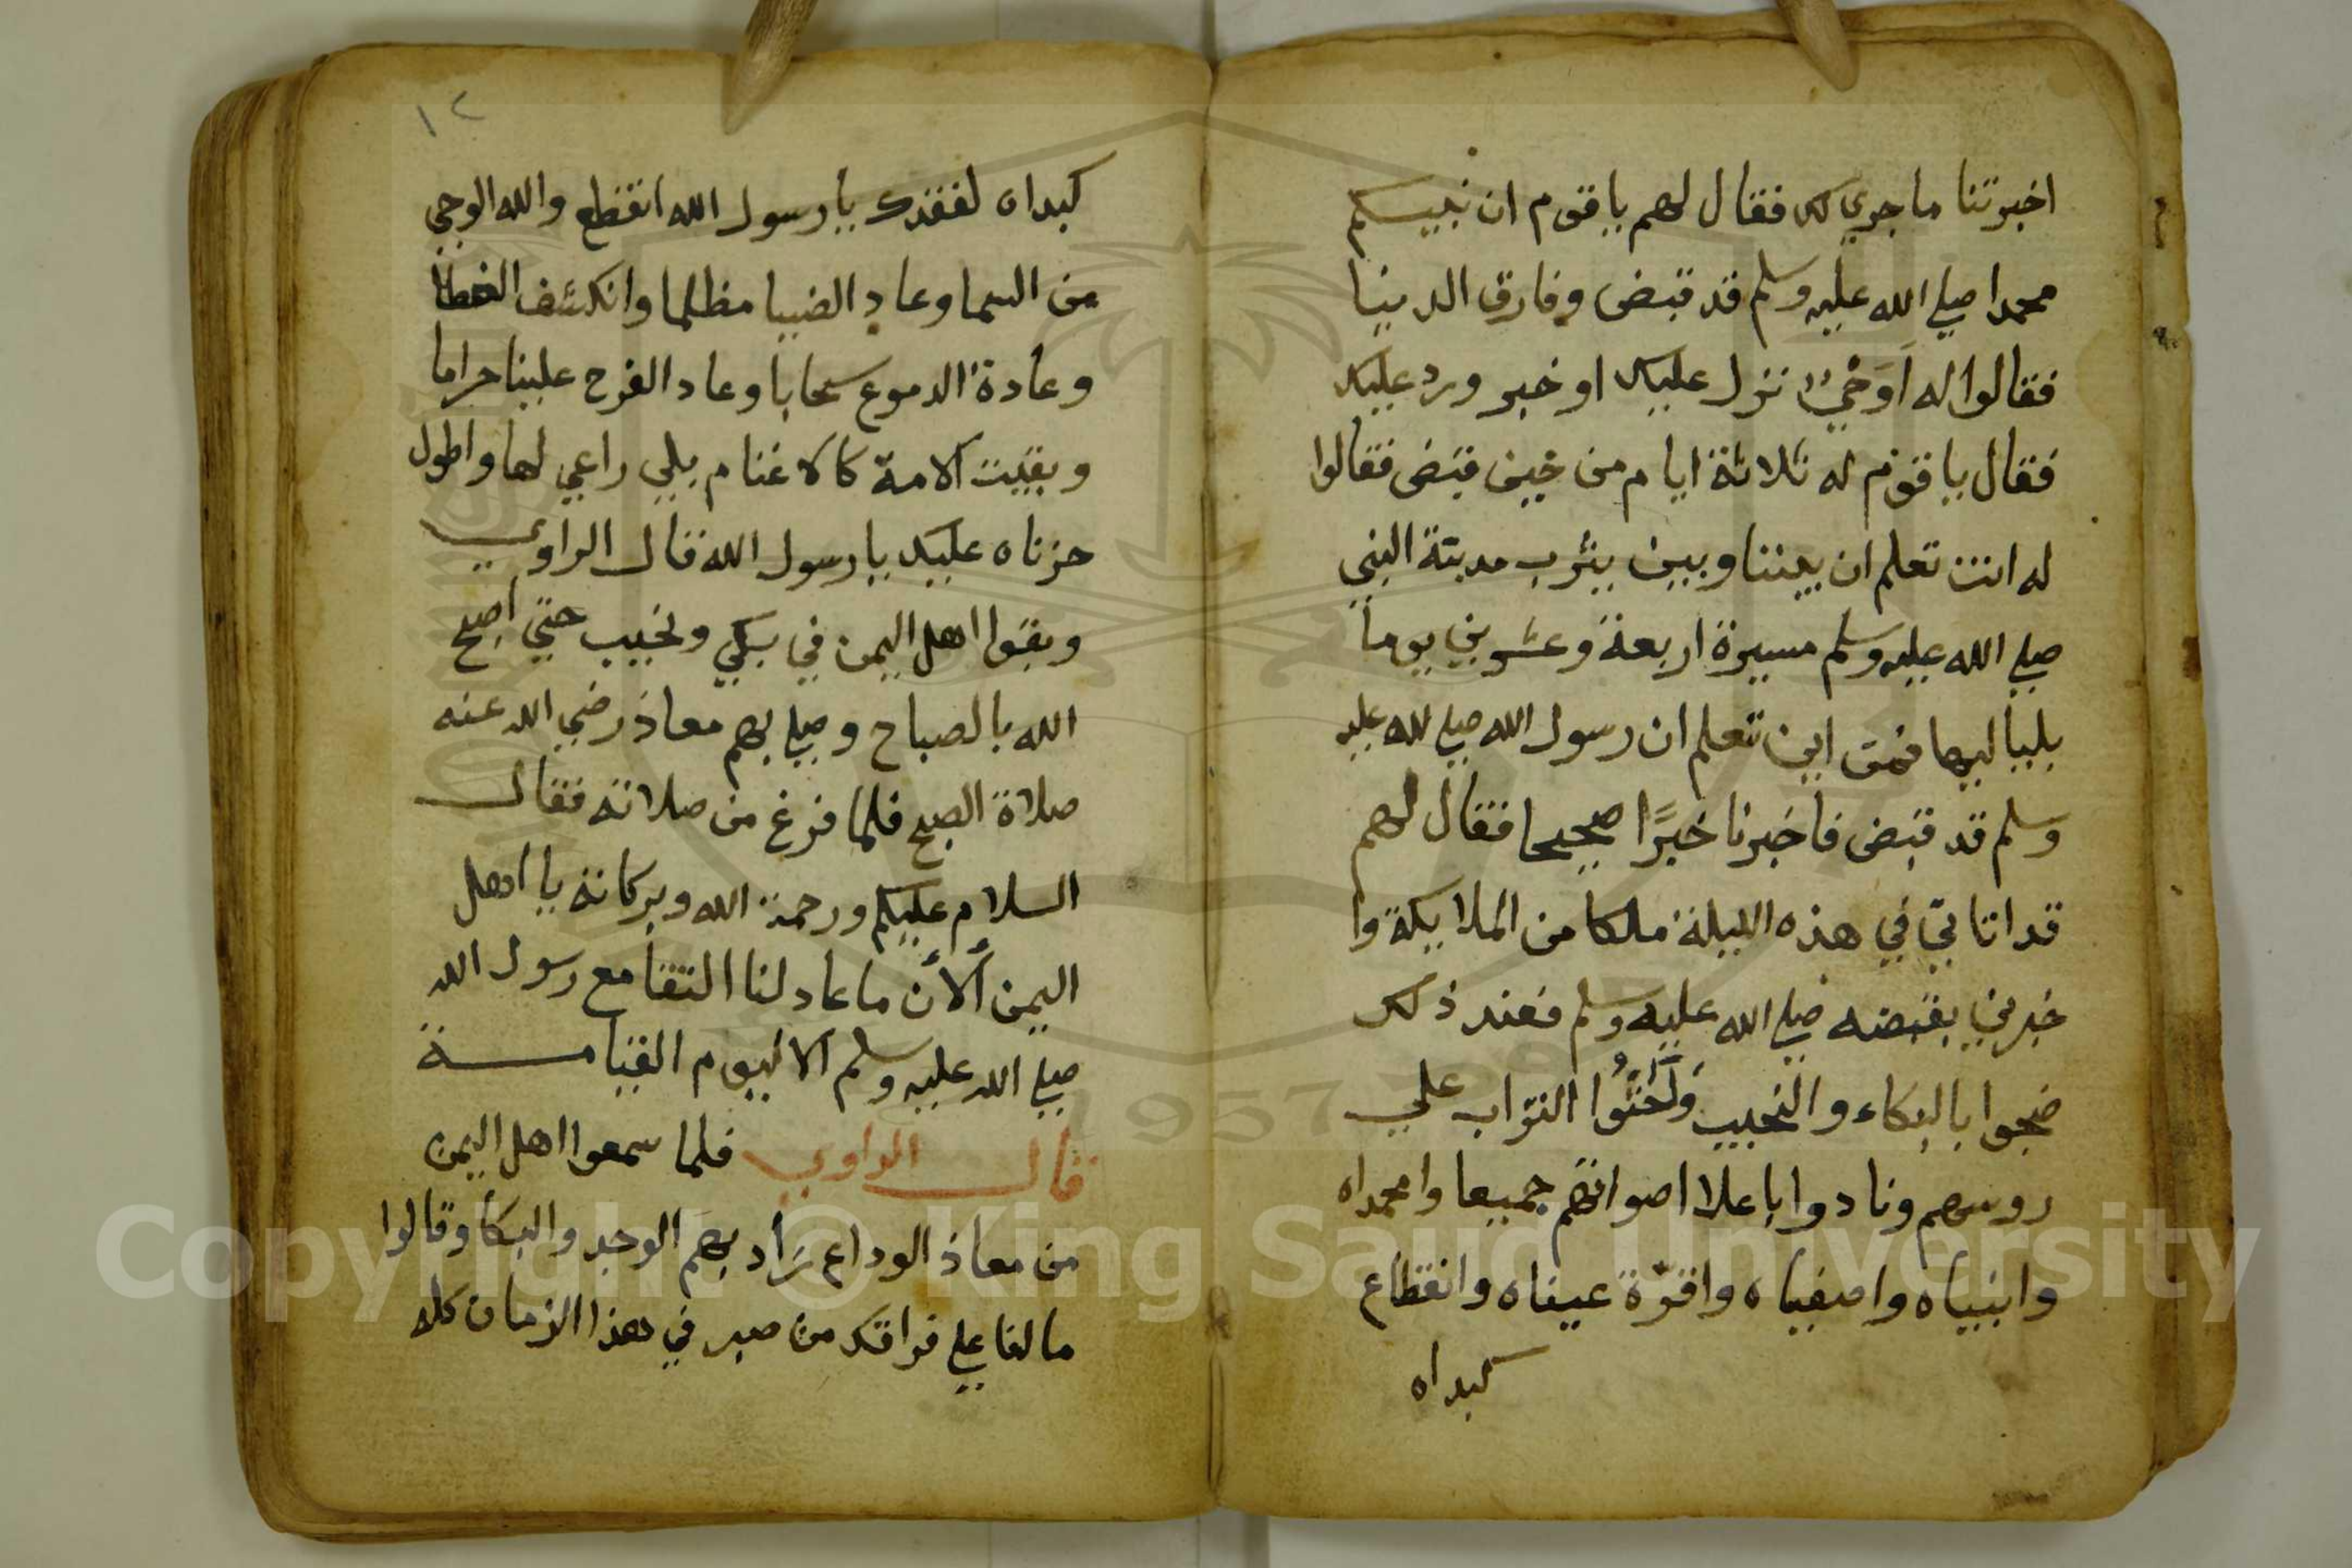 اخبرتنا ما جري لك فقال لهم يا قوم ان نبيكم
محمدا صلي الله عليه وسلم قد قبض وفارق الدنيا
فقالوا له اَوَحْيٌ نزل عليك او خبر ورد عليك
فقال يا قوم له ثلاثة ايام من حين قبض فقالوا
له انت تعلم ان بيننا وبين يثرب مدينة النبي
صلي الله عليه وسلم مسيرة اربعة وعشرين يوماً
بلياليها فمن اين تعلم ان رسول الله صلي لله عليه
وسلم قد قبض فاخبرنا خبرًا صحيحا فقال لهم
قد اتاني في هذه الليلة ملكا من الملايكة وا
خبرني بقبضه صلي الله عليه وسلم فعند ذلك
ضجوا بالبكاء والنحيب وَاَحْثُوا التراب علي
روسهم ونادوا باعلا اصواتهم جميعا وا محمداه
وانبياه واصفياه واقرّة عيناه وانقطاع
كبداه
١٢
كبداه لفقدك يا رسول الله انقطع والله الوحي
من السما وعاد الضيا مظلما وانكشف الغطا
وعادة الدموع سحابا وعاد الفرح علينا حراما
وبقيت الامة كالاغنام بلي راعي لها واطول
حزناه عليك يا رسول الله قال الراوي
وبقوا اهل اليمن في بكي ونحيب حتي اصبح
الله بالصباح وصلي بهم معاذ رضي الله عنه
صلاة الصبح فلما فرغ من صلاته فقال
السلام عليكم ورحمة الله وبركاته يا اهل
اليمن ألأن ما عاد لنا التقا مع رسول الله
صلي الله عليه وسلم الا ليوم القيامة
قال الراوي فلما سمعوا اهل اليمن
من معاذ الوداع زاد بهم الوجد والبكا وقالوا
ما لنا علي فراقك من صبر في هذا الزمان كله
Copyright © King Saud University
1957